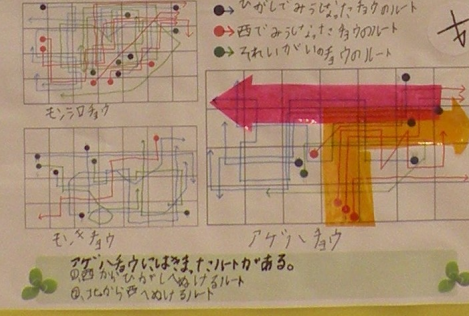 ひがしでみうしなったチョウのルート
西でみうしなったチョウのルート
それいがいのチョウのルート
モンシロチョウ
モンキチョウ
アゲハチョウ
アゲハチョウにはきまったルートがある。
①西からひがしへぬけるルート
②北から西へぬけるルート